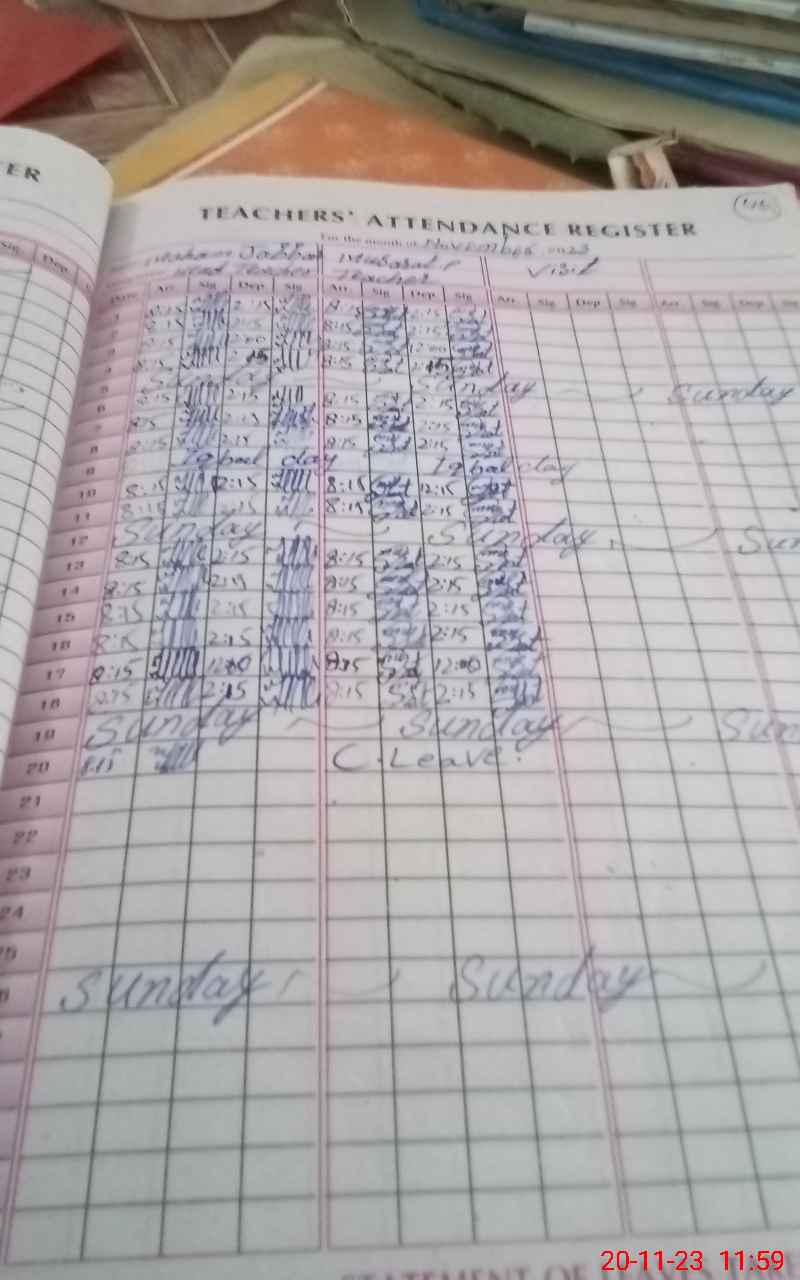 TER
TEACHERS' ATTENDANCE REGISTER
For the month of November 2023
Jabbar Mubarat Visit
Head Teacher Teacher
Sig. Dep.
Date Arr. Sig Dep Sig Arr. Sig Dep Sig Arr. Sig Dep Sig Arr. Sig Dep Sig
1 8:15 2:15 8:15 2:15
2 8:15 2:15 8:15 2:15
3 8:15 12:00 8:15 12:00
4 8:15 2:15 8:15 2:15
5 Sunday Sunday Sunday
6 8:15 2:15 8:15 2:15
7 8:15 2:15 8:15 2:15
8 8:15 2:15 8:15 2:15
9 Iqbal day Iqbal day
10 8:15 12:15 8:15 12:15
11 8:15 2:15 8:15 2:15
12 Sunday Sunday Sun
13 8:15 2:15 8:15 2:15
14 8:15 2:15 8:15 2:15
15 8:15 2:15 8:15 2:15
16 8:15 2:15 8:15 2:15
17 8:15 12:00 8:15 12:00
18 8:15 2:15 8:15 2:15
19 Sunday Sunday Sun
20 8:15 C. Leave.
21
22
23
24
25
Sunday Sunday
STATEMENT OF
20-11-23 11:59